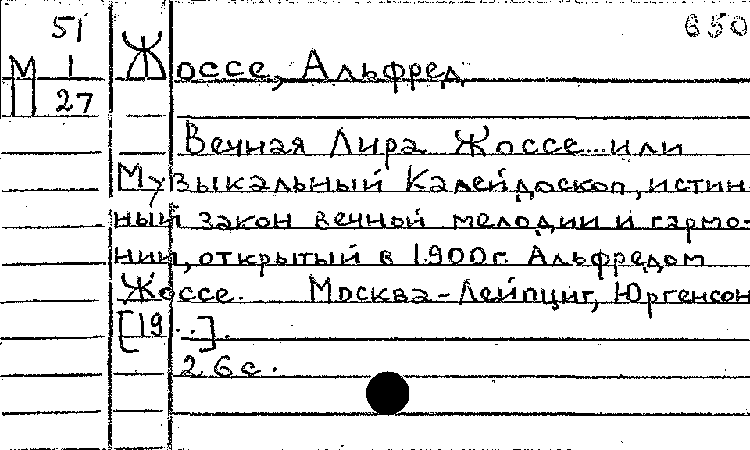 51
650
М 1
Жоссе, Альфред
П 27
Вечная Лира Жоссе...или
Музыкальный Калейдоскоп, истин-
ный закон вечной мелодии и гармо-
нии, открытый в 1900г. Альфредом
Жоссе. Москва-Лейпциг, Юргенсон
[19..].
26с.